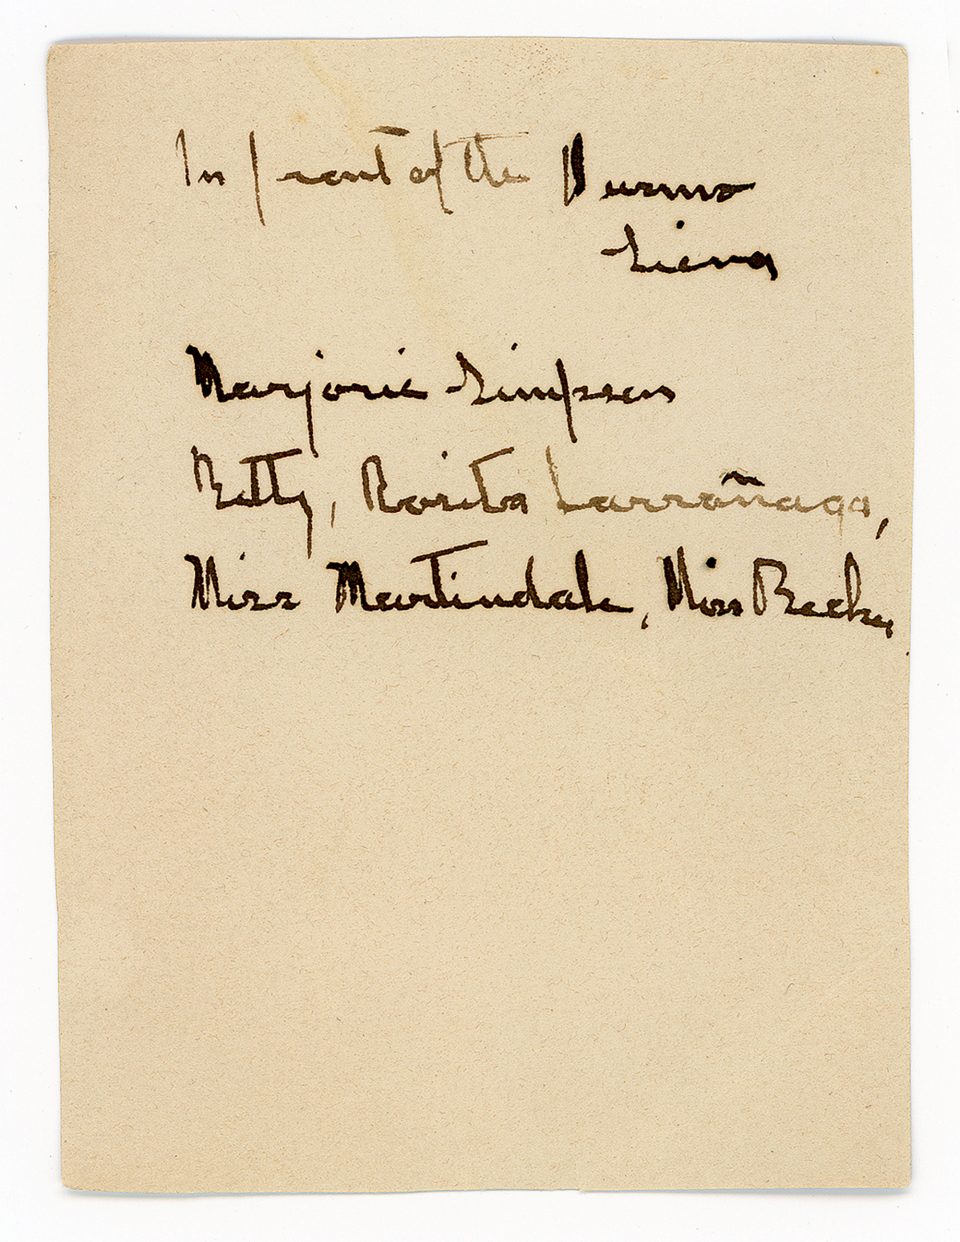 In front of the Duomo
Siena
Marjorie Simpson
Betty, Rosita Larrañaga,
Miss Martindale, Miss